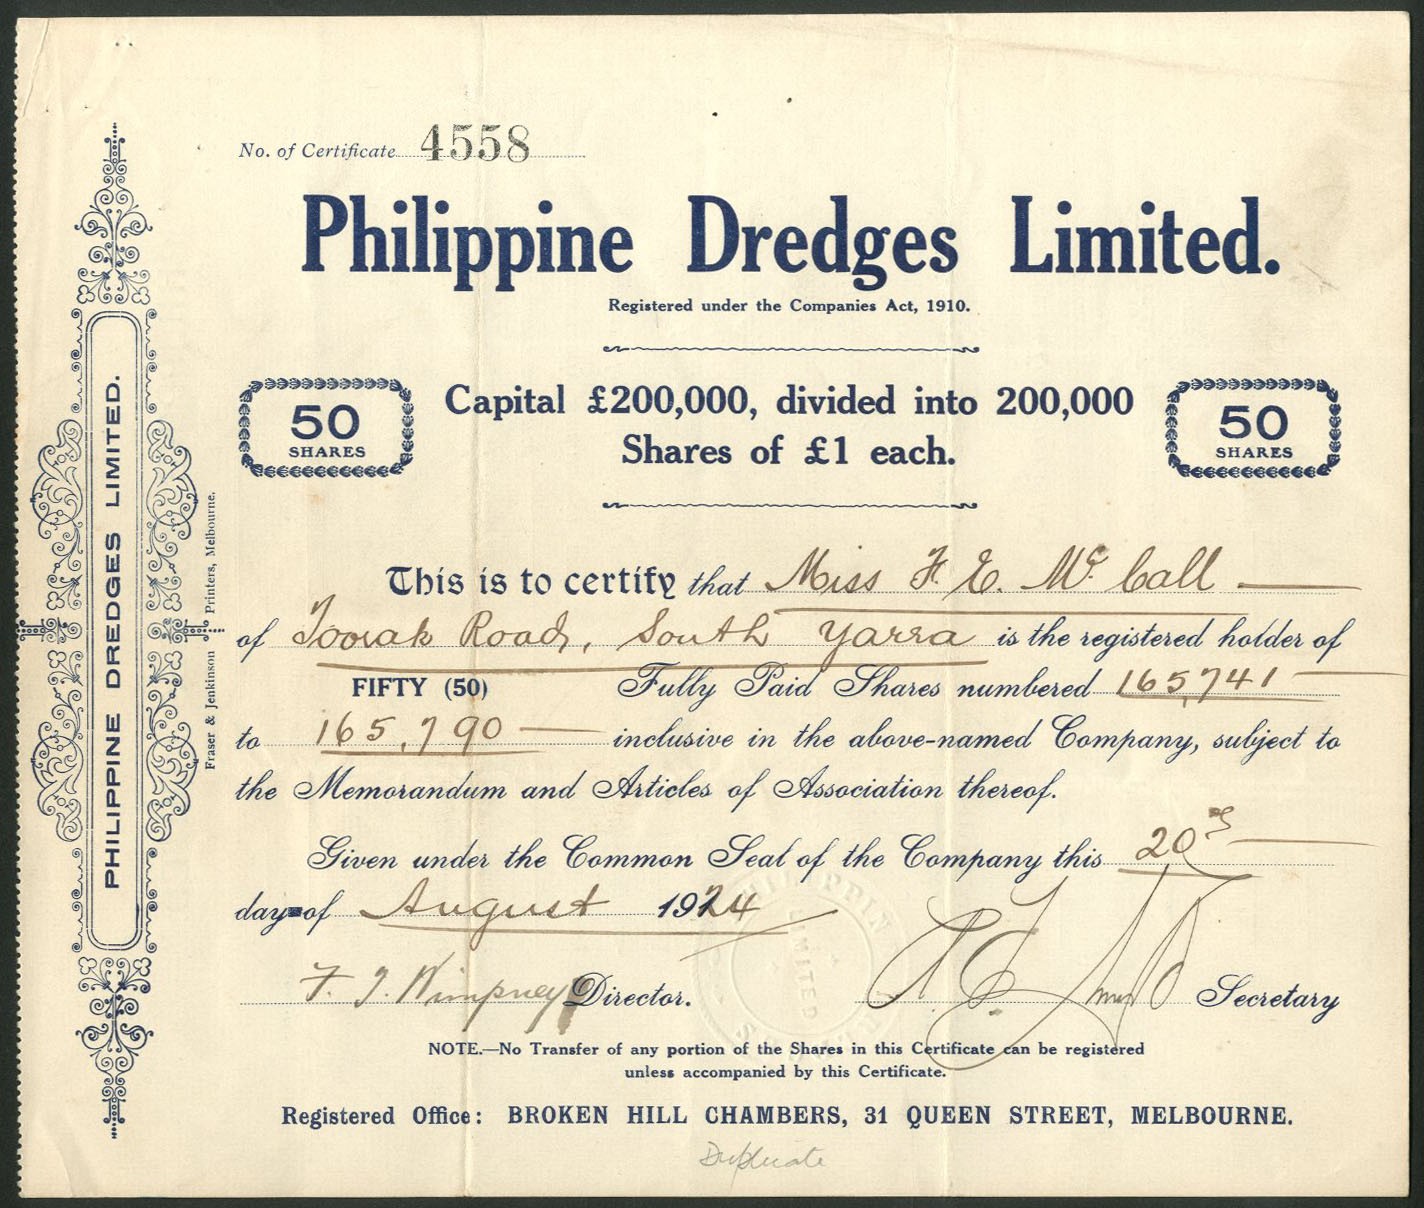 No. of Certificate 4558
Philippine Dredges Limited.
Registered under the Companies Act, 1910.
50
SHARES
Capital £200,000, divided into 200,000
Shares of £1 each.
50
SHARES
This is to certify that Miss F. E. McCall
of Toorak Road, South Yarra is the registered holder of
FIFTY (50) Fully Paid Shares numbered 165,741
to 165,790 inclusive in the above-named Company, subject to
the Memorandum and Articles of Association thereof.
Given under the Common Seal of the Company this 20th
day of August 1924
F. J. Wimpney Director.
Secretary
NOTE.—No Transfer of any portion of the Shares in this Certificate can be registered
unless accompanied by this Certificate.
Registered Office: BROKEN HILL CHAMBERS, 31 QUEEN STREET, MELBOURNE.
Duplicate
PHILIPPINE DREDGES LIMITED.
Fraser & Jenkinson Printers, Melbourne.